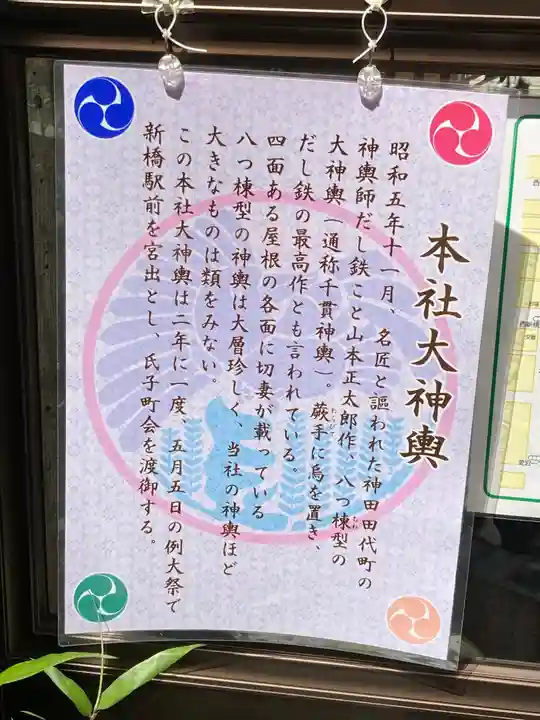 本社大神輿
昭和五年十一月、名匠と謳われた神田田代町の
神輿師だし鉄こと山本正太郎作、八つ棟型の
むね
大神輿（通称千貫神輿）。蕨手に烏を置き、
わらびて
だし鉄の最高作とも言われている。
四面ある屋根の各面に切妻が載っている
八つ棟型の神輿は大層珍しく、当社の神輿ほど
大きなものは類をみない。
この本社大神輿は二年に一度、五月五日の例大祭で
新橋駅前を宮出とし、氏子町会を渡御する。